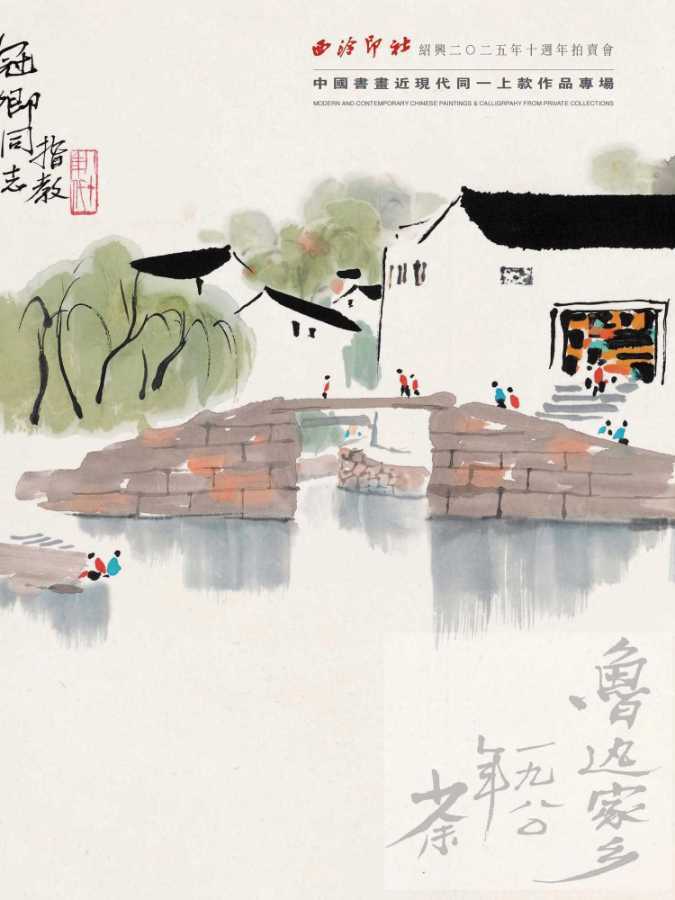 西泠印社 紹興二〇二五年十週年拍賣會
中國書畫近現代同一上款作品專場
MODERN AND CONTEMPORARY CHINESE PAINTINGS & CALLIGRPAHY FROM PRIVATE COLLECTIONS
冠卿同志
指教
魯迅家乡
一九八〇
年
荼